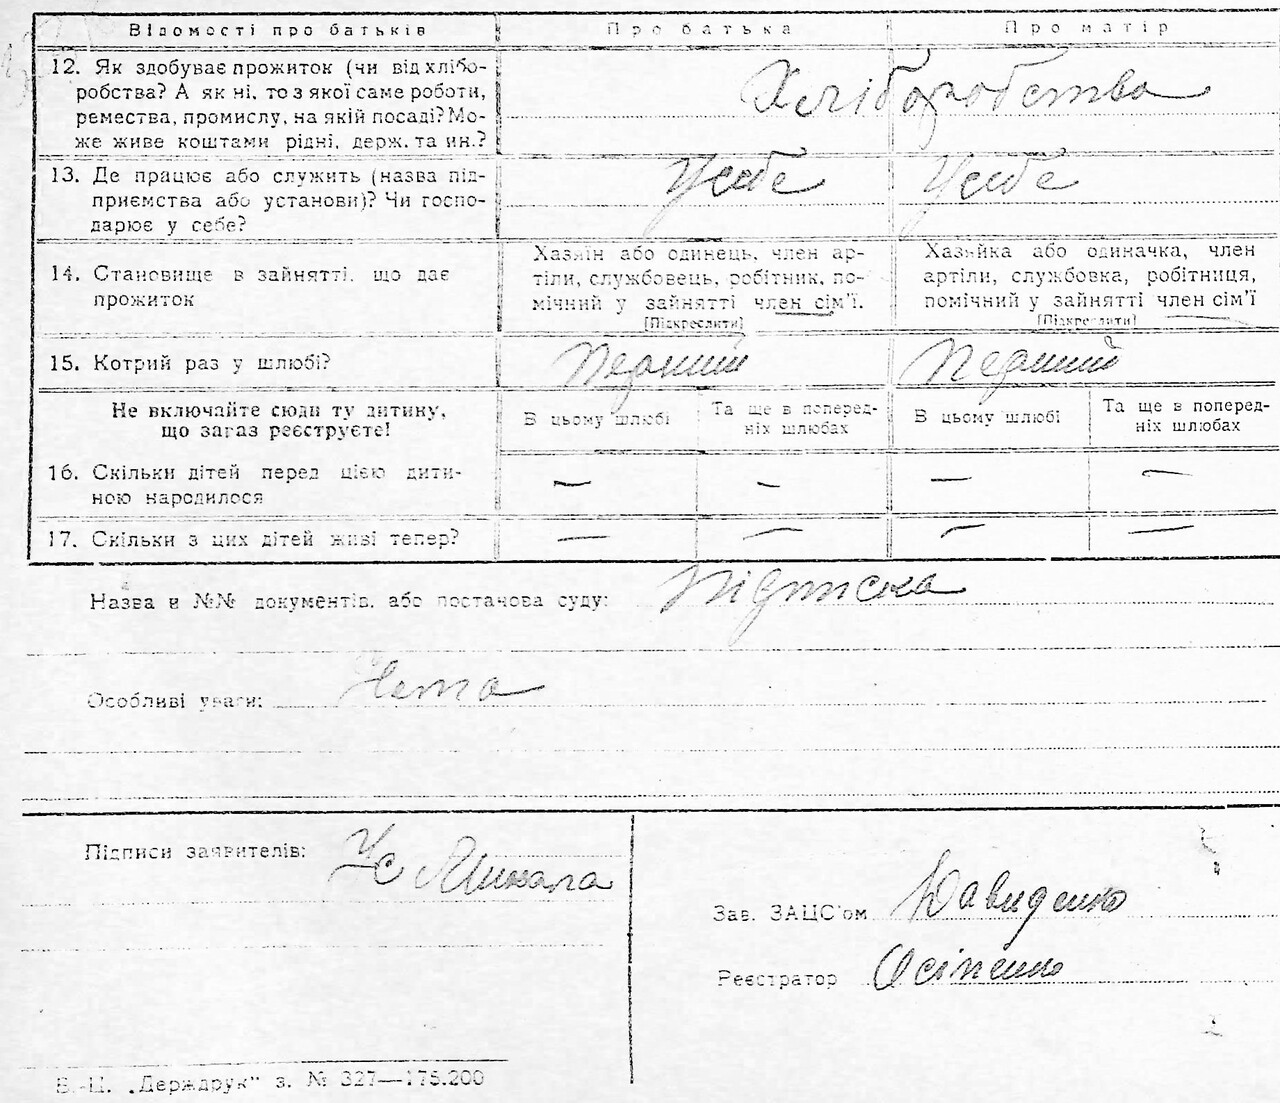 Відомості про батьків Про батька Про матір
12. Як здобуває прожиток (чи від хлібо-
робства? А як ні, то з якої саме роботи,
ремества, промислу, на якій посаді? Мо-
же живе коштами рідні, держ. та ин.?
Хліборобства
13. Де працює або служить (назва під-
приємства або установи)? Чи госпо-
дарює у себе?
У себе У себе
14. Становище в зайнятті, що дає
прожиток
Хазяїн або одинець, член ар-
тіли, службовець, робітник, по-
мічний у зайнятті член сім'ї.
[Підкреслити]
Хазяйка або одиначка, член
артіли, службовка, робітниця,
помічний у зайнятті член сім'ї
[Підкреслити]
15. Котрий раз у шлюбі? Перший Перший
Не включайте сюди ту дитину,
що зараз реєструєте!
В цьому шлюбі
Та ще в поперед-
ніх шлюбах
В цьому шлюбі
Та ще в поперед-
ніх шлюбах
16. Скільки дітей перед цією дити-
ною народилося
— — — —
17. Скільки з цих дітей живі тепер? — — — —
Назва и №№ документів, або постанова суду: Підписка
Особливі уваги: Нема
Підписи заявителів:
Зав. ЗАЦС'ом Давиденко
Реєстратор Осіпенко
Б.-Ц. „Держдрук" з. № 327—175.200